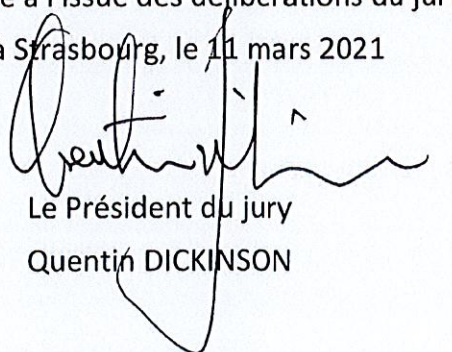 à l'issue des délibérations du jur
a Strasbourg, le 11 mars 2021
Le Président du jury
Quentin DICKINSON